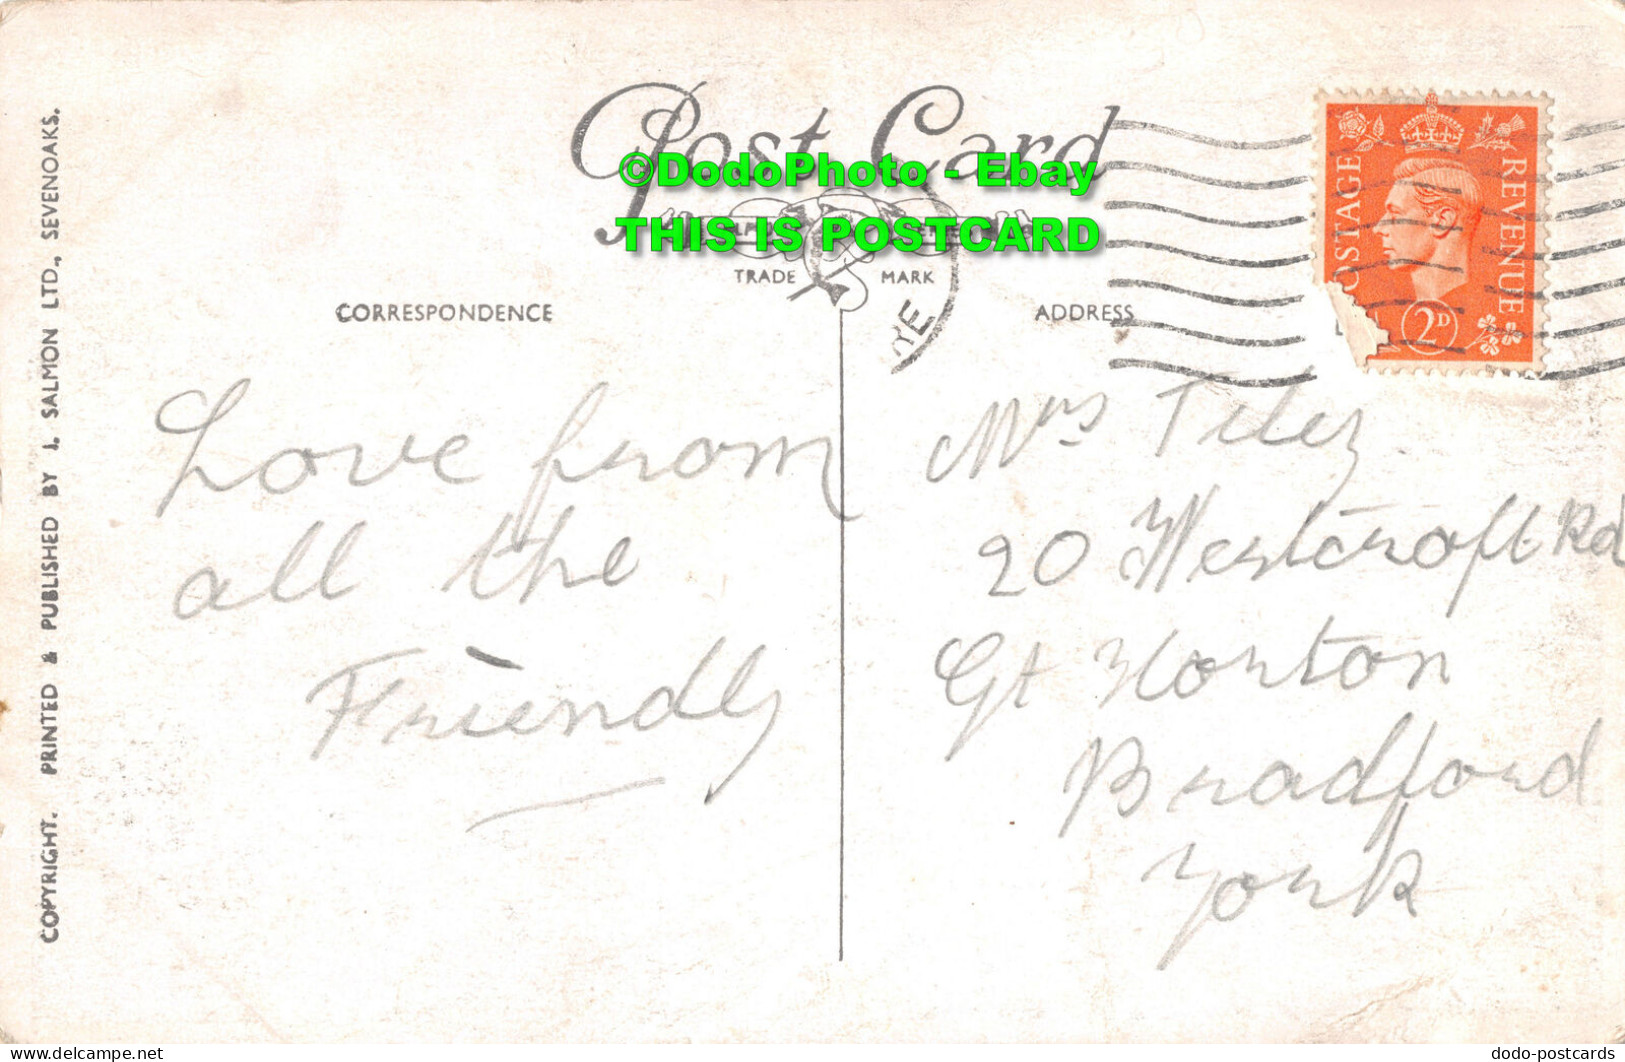 Post Card
©DodoPhoto - Ebay
THIS IS POSTCARD
TRADE MARK
CORRESPONDENCE
ADDRESS
POSTAGE
REVENUE
2D
Love from
all the
Friendly
Mrs
20 Westcroft Rd
Gt Horton
Bradford
York
COPYRIGHT. PRINTED & PUBLISHED BY J. SALMON LTD., SEVENOAKS.
Delcampe.net
dodo-postcards